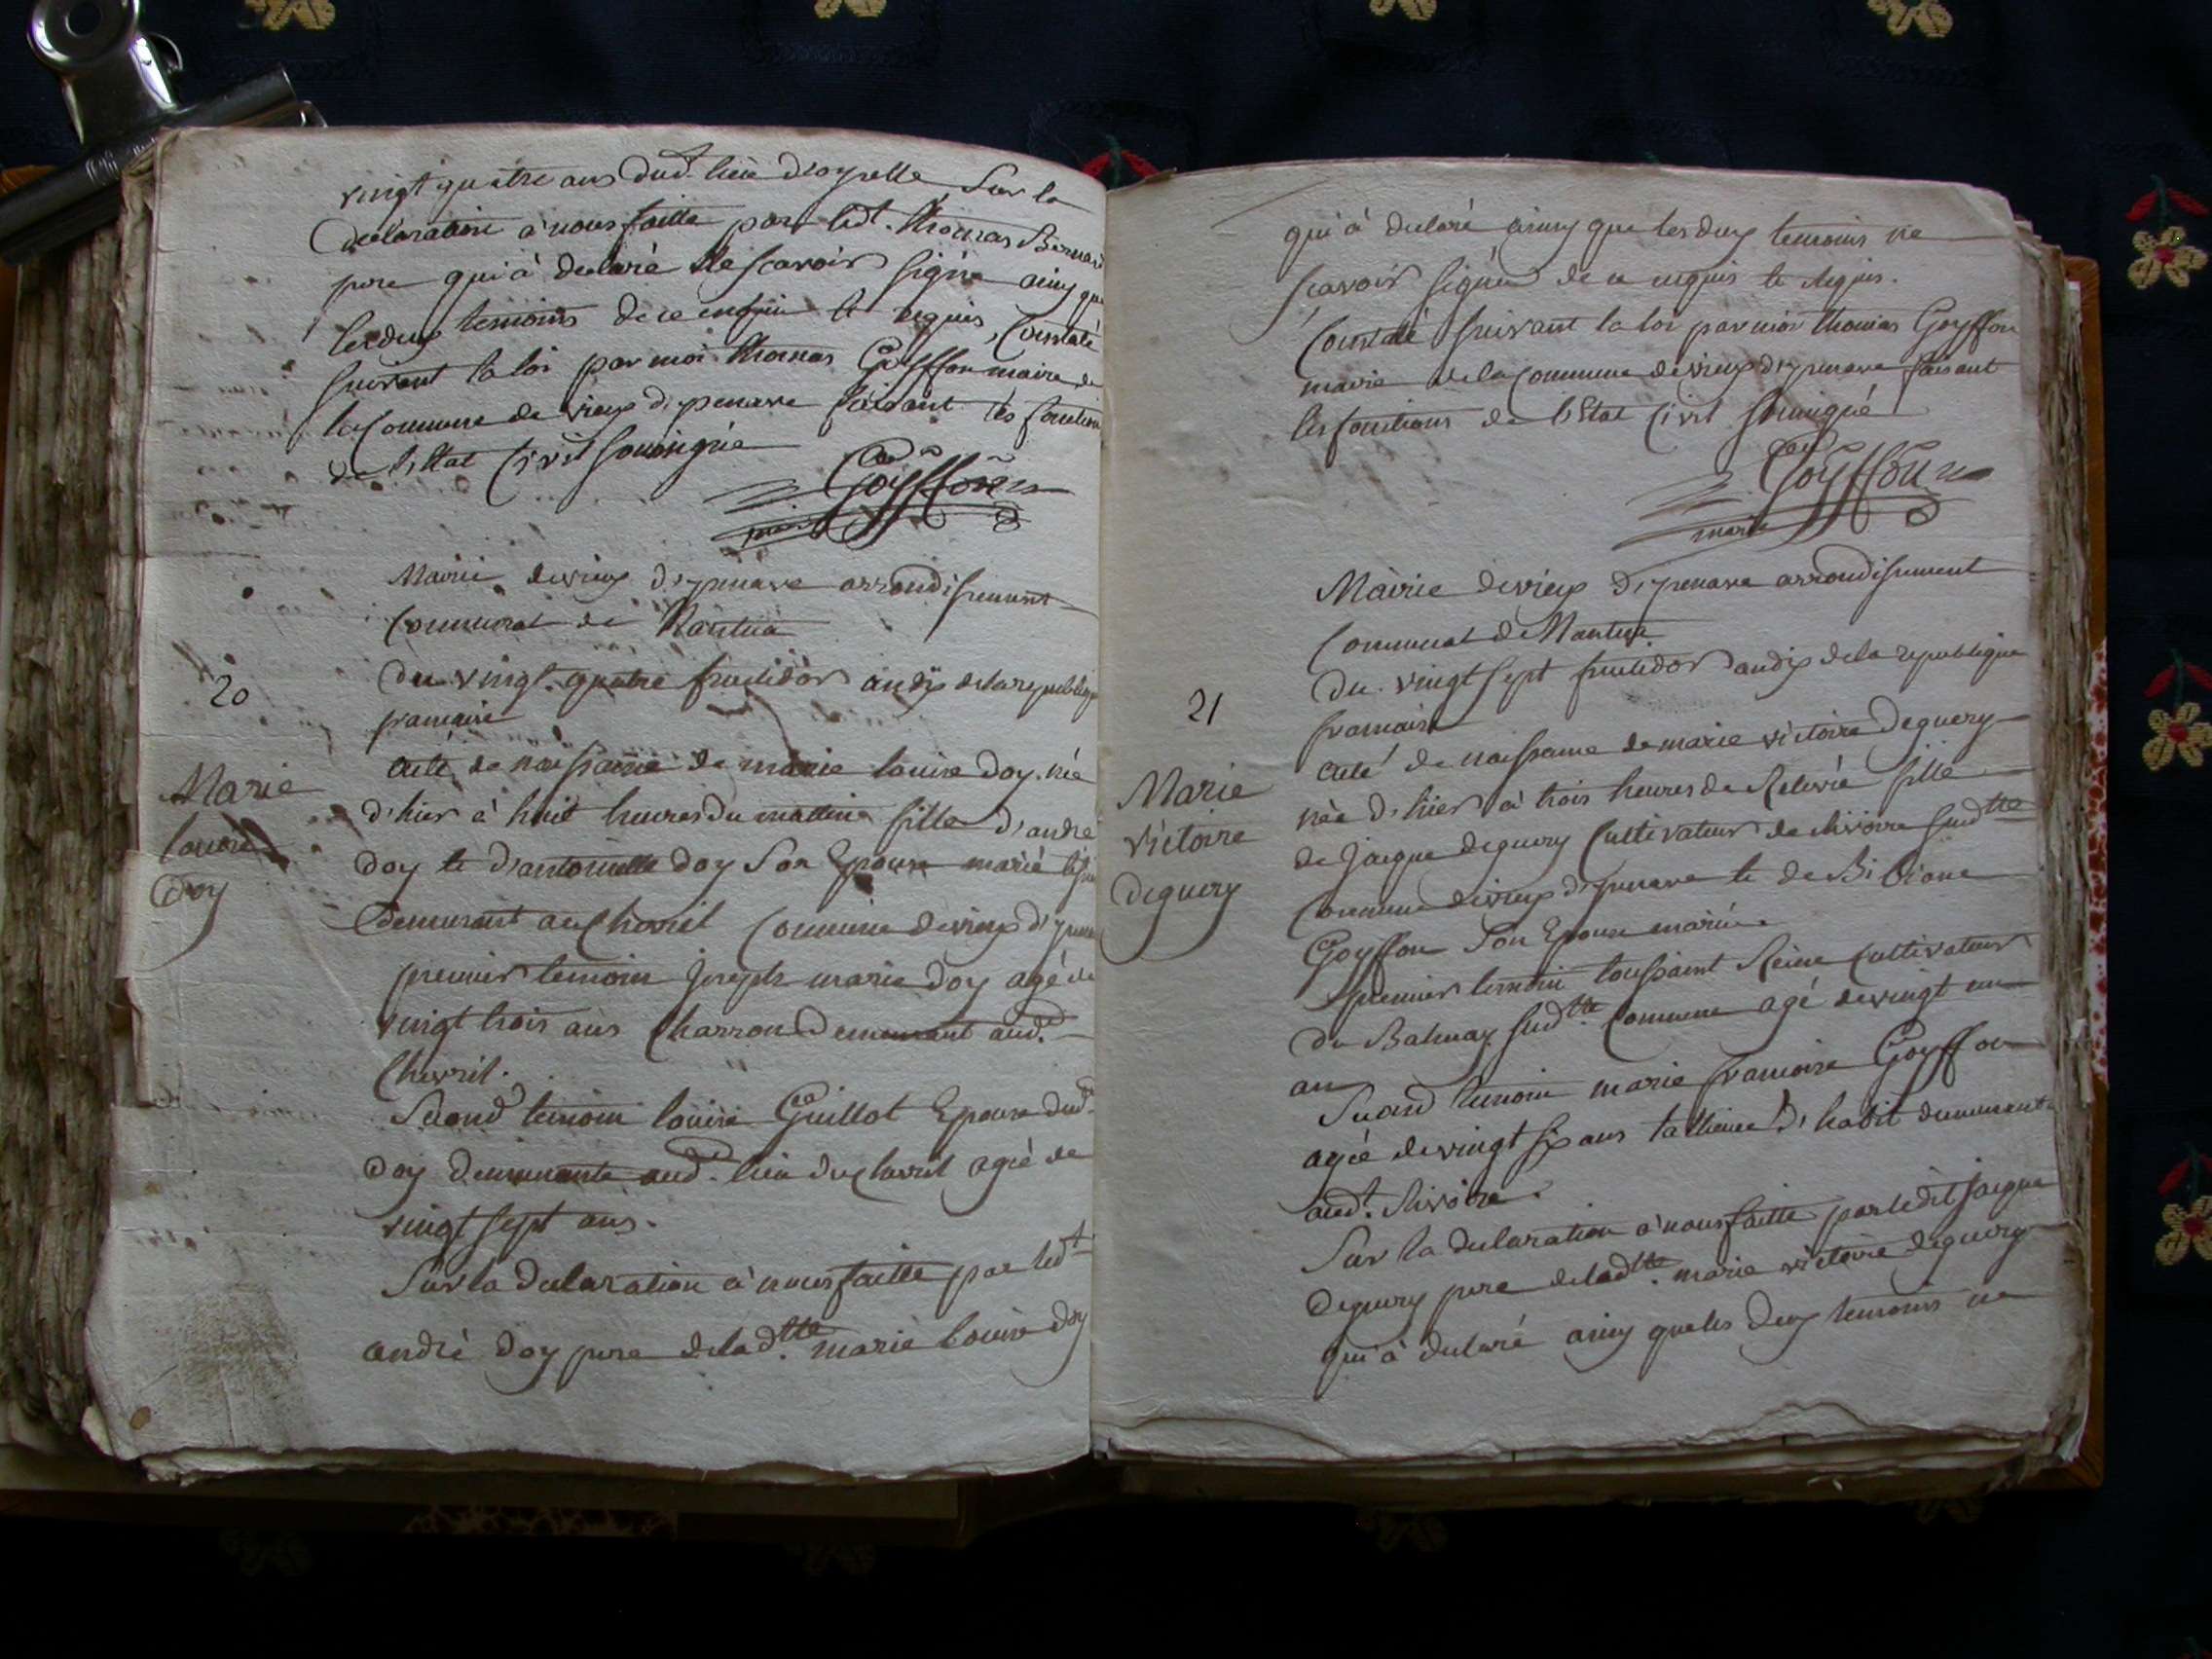 vingt quatre ans dud. lieu d'oyselle sur la
declaration à nous faitte par led.t thomas Bernard
pere qui à declaré ne scavoir signé ainsy que
les deux temoins de ce enquis et requis, Constaté
suivant la loi par moi thomas Goyffon maire de
la Commune de vieux d'ysenave faisant les fonctions
de l'Etat Civil soussigné
Goyffon
maire
Mairie de vieux d'ysenave arrondissement
Communal de Nantua
20
du vingt quatre fructidor an dix de la republique
francaise
Marie
louise
Doy
acte de naissance de marie louise doy née
d'hier à huit heures du mattin fille d'andré
doy et d'antoinette doy son Epouse marié
demeurant au Chevril Commune de vieux d'ysenave
premier temoin joseph marie doy agé de
vingt trois ans Charron demeurant aud.
Chevril.
Second temoin louise Guillot Epouse dud.
doy demeurante aud. lieu du Chevril agé de
vingt sept ans.
Sur la declaration à nous faitte par led.t
andré doy pere de lad.tte marie louise doy
qui à declaré ainsy que les deux temoins ne
scavoir signé de ce enquis et requis.
Constaté suivant la loi par moi thomas Goyffon
maire de la Commune de vieux d'ysenave faisant
les fonctions de l'Etat Civil soussigné
Goyffon
maire
Mairie de vieux d'ysenave arrondissement
Communal de Nantua
21
du vingt sept fructidor an dix de la republique
francaise
Marie
victoire
deguery
acte de naissance de marie victoire deguery
née d'hier à trois heures de relevée fille
de jacque deguery Cultivateur de chivoire sud.tte
Commune de vieux d'ysenave et de Bibiane
Goyffon son Epouse mariée.
premier temoin toussaint Reine Cultivateur
du Balmay sud.tte Commune agé de vingt un
an
Second temoin marie francoise Goyffon
agée de vingt six ans tallieuse d'habit demeurante
aud.t chivoire.
Sur la declaration à nous faitte par ledit jacque
deguery pere de lad.tte marie victoire deguery
qui à declaré ainsy que les deux temoins ne